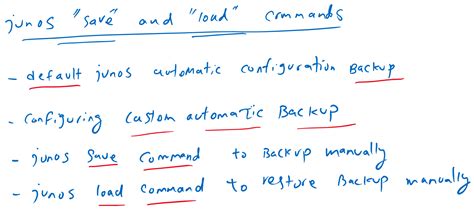 junos "save" and "load" commands
- default junos automatic configuration Backup
- configuring custom automatic Backup
- junos save command to Backup manually
- junos load command to restore Backup manually